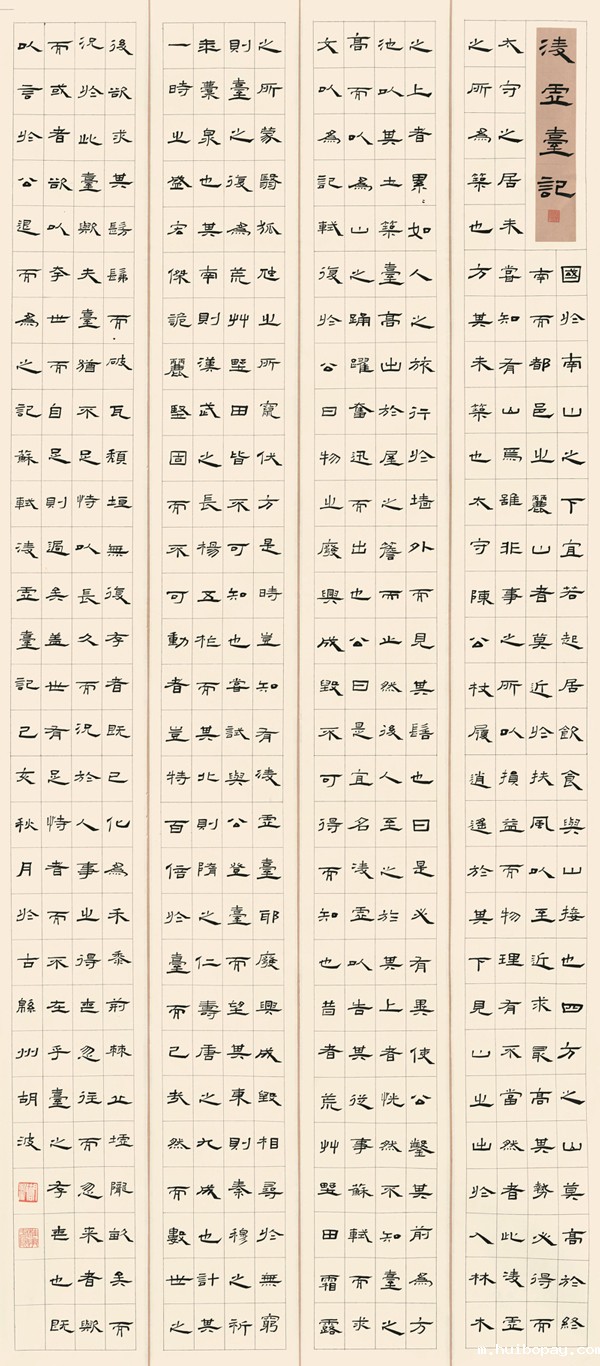 凌虛臺記
國於南山之下宜若起居飲食與山接也四方之山莫高於終
南而都邑之麗山者莫近於扶風以至近求最高其勢必得而
太守之居未嘗知有山焉雖非事之所以損益而物理有不當然者此凌虛
之所為築也方其未築也太守陳公杖履逍遙於其下見山之出於入林木
之上者累〻如人之旅行於墻外而見其髻也曰是必有異使公鑿其前為方
池以其土築臺高出於屋之簷而止然後人至之於其上者恍然不知臺之
高而以為山之踊躍奮迅而出也公曰是宜名凌虛以告其從事蘇軾而求
文以為記軾復於公曰物之廢興成毀不可得而知也昔者荒艸野田霜露
之所蒙翳狐虺之所竄伏方是時豈知有凌虛臺耶廢興成毀相尋於無窮
則臺之復為荒艸野田皆不可知也嘗試與公登臺而望其東則秦穆之祈
年橐泉也其南則漢武之長楊五柞而其北則隋之仁壽唐之九成也計其
一時之盛宏傑詭麗堅固而不可動者豈特百倍於臺而已哉然而數世之
後欲求其髣髴而破瓦頹垣無復存者既已化為禾黍荊棘丘墟隴畝矣而
況於此臺歟夫臺猶不足恃以長久而況於人事之得喪忽往而忽來者歟
而或者欲以夸世而自足則過矣蓋世有足恃者而不在乎臺之存亡也既
以言於公退而為之記蘇軾凌虛臺記己亥秋月於古緜州胡波
m.huibopay.com